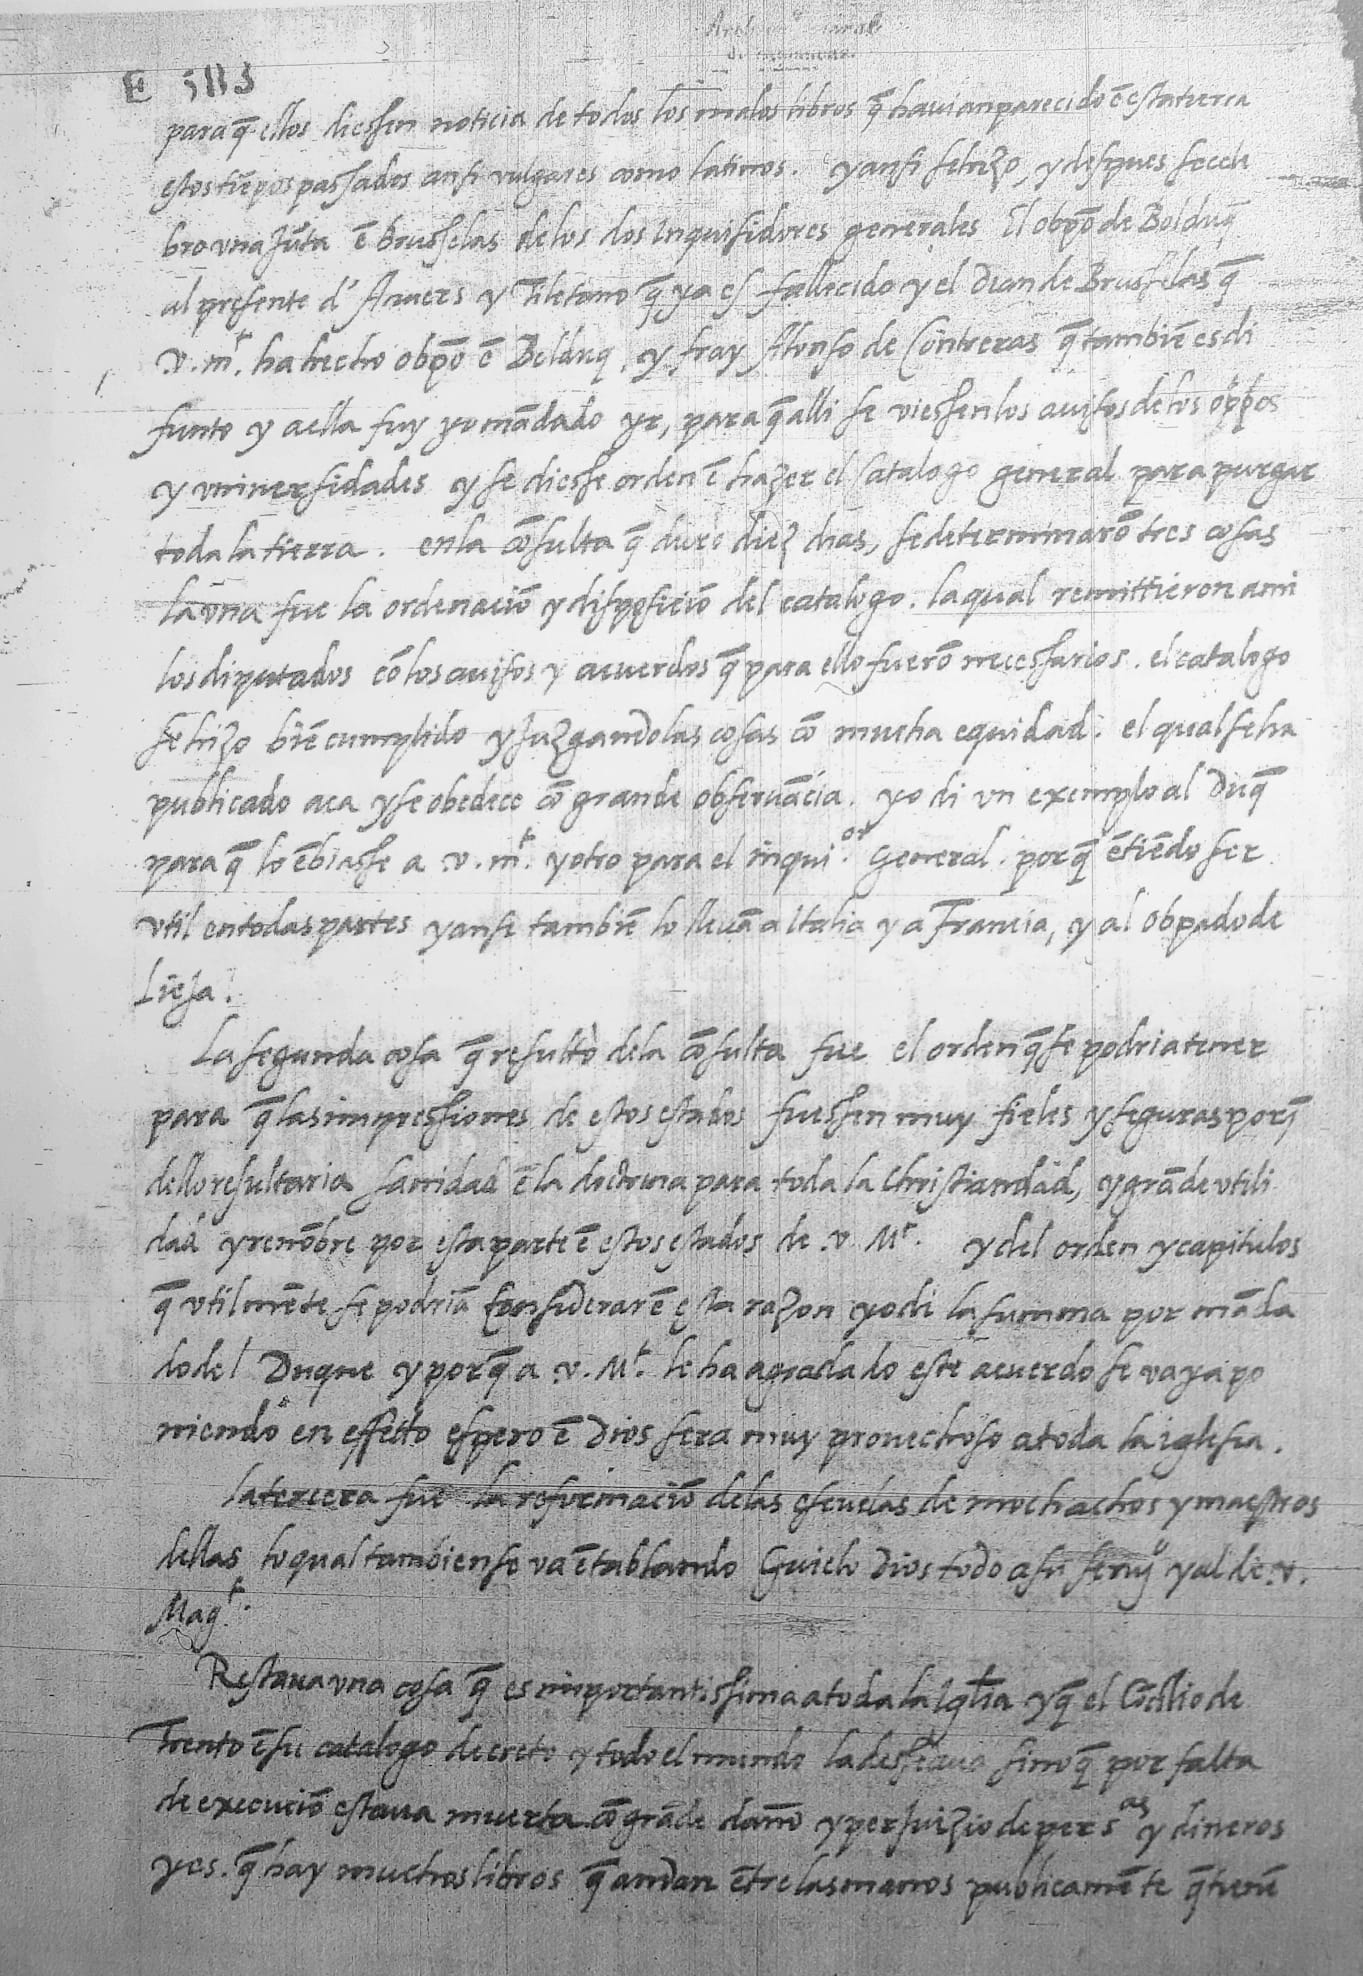 E 583
para q̄ ellos diessen noticia de todos los malos libros q̄ havian parecido ē esta tierra
estos tiēpos passados ansi vulgares como latinos. y ansi se hizo, y despues se cele
bro vna jūta ē Brusselas de los dos Inquisidores generales El obpō de Bolduq̄
al presente d' Anvers y Tiletano q̄ ya es fallecido y el Dean de Brusselas q̄
.v. mt. ha hecho obpō ē Bolduq, y fray Alonso de Cōntreras q̄ tambiē es di
funto y a ella fuy yo mādado yr, para q̄ alli se viessen los auisos de los oppōs
y vniuersidades y se diesse orden ē hazer el Catalogo general para purgar
toda la tierra. en la cōsulta q̄ duro diez dias, se determinarō tres cosas
la vna fue la ordenaciō y disposiciō del catalogo. la qual remittieron a mi
los diputados cō los auisos y acuerdos q̄ para ello fuerō necessarios. el catalogo
se hizo biē cumplido y juzgando las cosas cō mucha equidad. el qual se ha
publicado aca y se obedece cō grande obseruācia. yo di vn exemplo al Duq̄
para q̄ lo ēbiasse a .v. mt. y otro para el inqui.or General. porq̄ ētiēdo ser
vtil en todas partes y ansi tambiē lo lleuā a Italia y a Francia, y al Obpado de
Lieja.
La segunda cosa q̄ resultò de la cōsulta fue el orden q̄ se podria tener
para q̄ las impressiones de estos estados fuessen muy fieles y seguras porq̄
dello resultaria sanidad ē la doctrina para toda la Christiandad, y grāde vtili
dad y renōbre por esta parte ē estos estados de .v. Mt. y del orden y capitulos
q̄ vtilmēte se podriā considerar ē esta razon yo di la summa por māda
do del Duque y porq̄ a .v. Mt. le ha agradado este acuerdo se vaya po
niendo en effetto espero ē Dios sera muy prouechoso a toda la iglesia.
la tercera fue la reformaciō de las escuelas de mochachos y maestros
dellas lo qual tambien se va ētablando Guielo Dios todo a su seruio y al de .v.
Magt.
Restaua vna cosa q̄ es importantissima a toda la Iglīa y q̄ el Cōcilio de
Trento ē su catalogo decreto y todo el mundo la desseaua sino q̄ por falta
de execuciō estaua muerta cō grāde daño y perjuizio de persas y dineros
y es. q̄ hay muchos libros q̄ andan ētre las manos publicamēte q̄ tienē